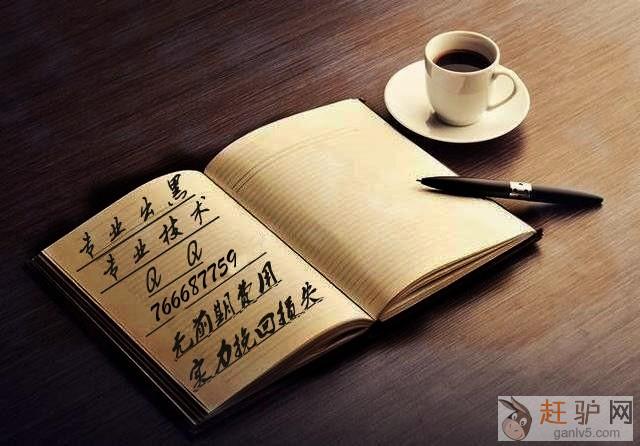 专业出黑
专业技术
QQ
766687759
无前期费用
实力挽回损失
赶驴网
ganlv5.com